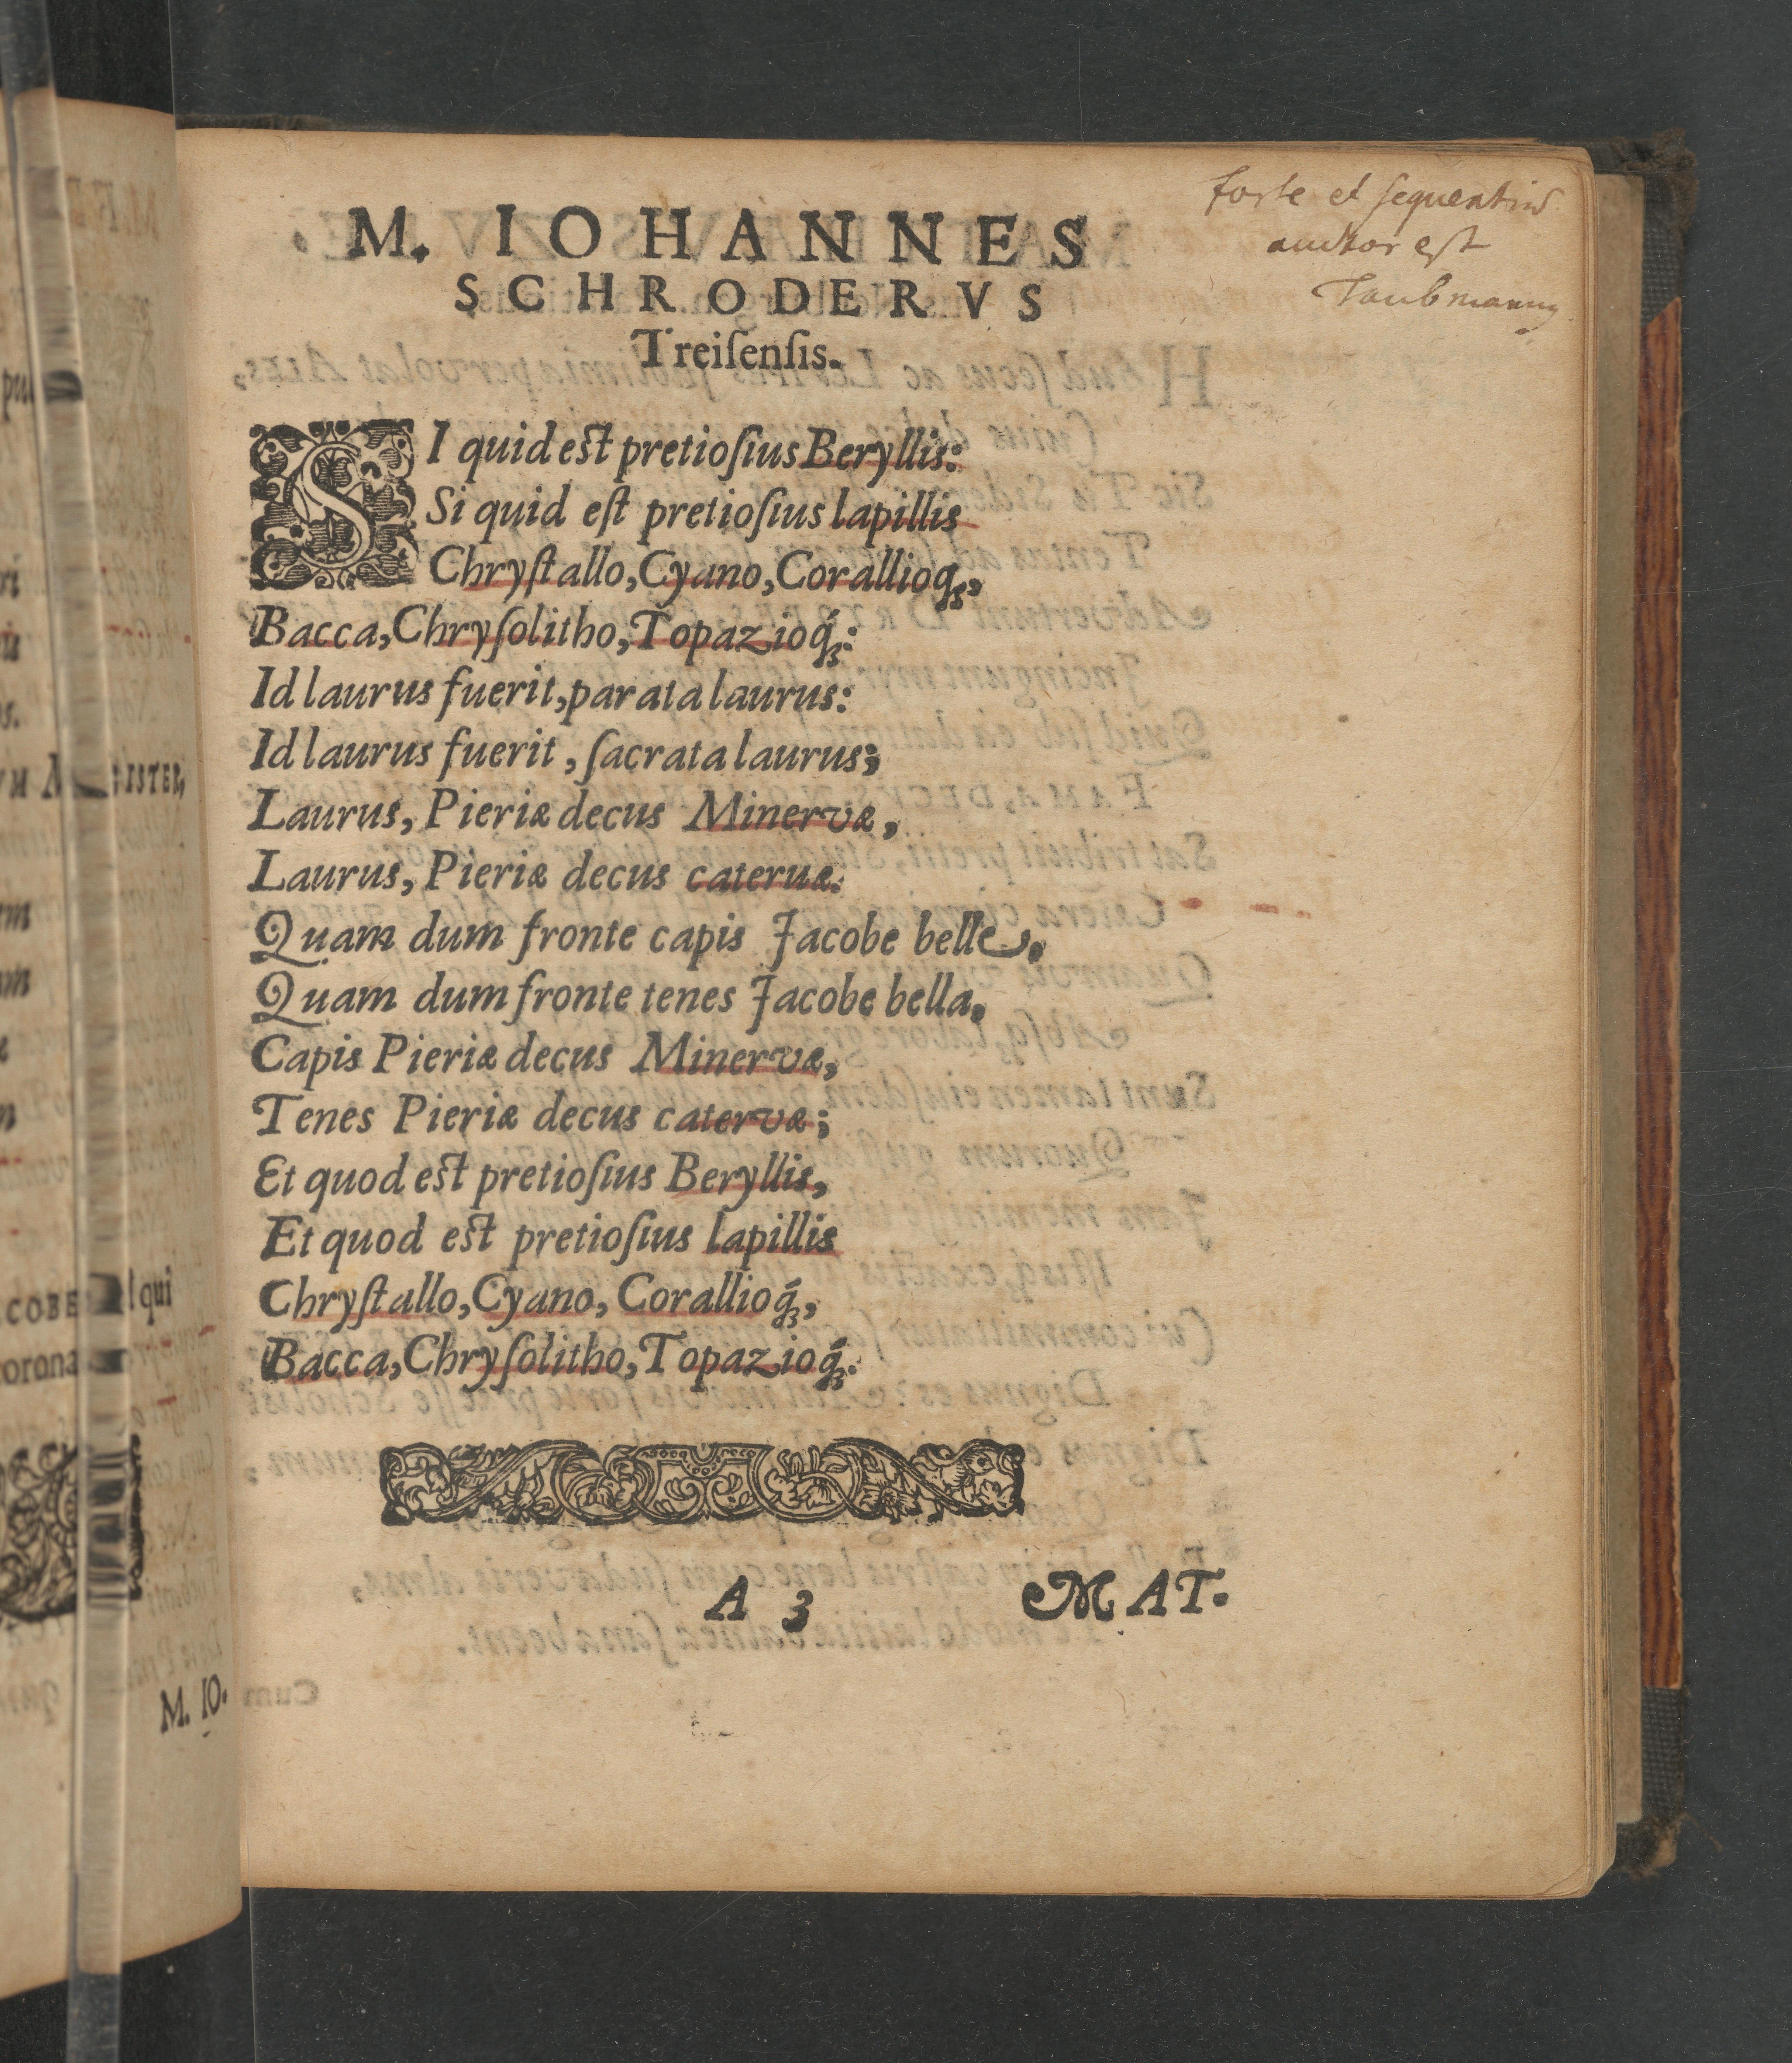 forte et sequentium
auctor est
Taubmannus
M. IOHANNES
SCHRODERVS
Treiſenſis.
SI quid est pretioſius Beryllis:
Si quid eſt pretioſius lapillis
Chryſtallo, Cyano, Corallioq́ꝫ,
Bacca, Chryſolitho, Topazioq́ꝫ:
Id laurus fuerit, parata laurus:
Id laurus fuerit, ſacrata laurus;
Laurus, Pieriæ decus Minervæ,
Laurus, Pieriæ decus cateruæ.
Quam dum fronte capis Jacobe belle,
Quam dum fronte tenes Jacobe bella,
Capis Pieriæ decus Minervæ,
Tenes Pieriæ decus catervæ;
Et quod est pretioſius Beryllis,
Et quod est pretioſius lapillis
Chryſtallo, Cyano, Corallioq́ꝫ,
Bacca, Chryſolitho, Topazioq́ꝫ.
A 3 MAT.
M. IO.